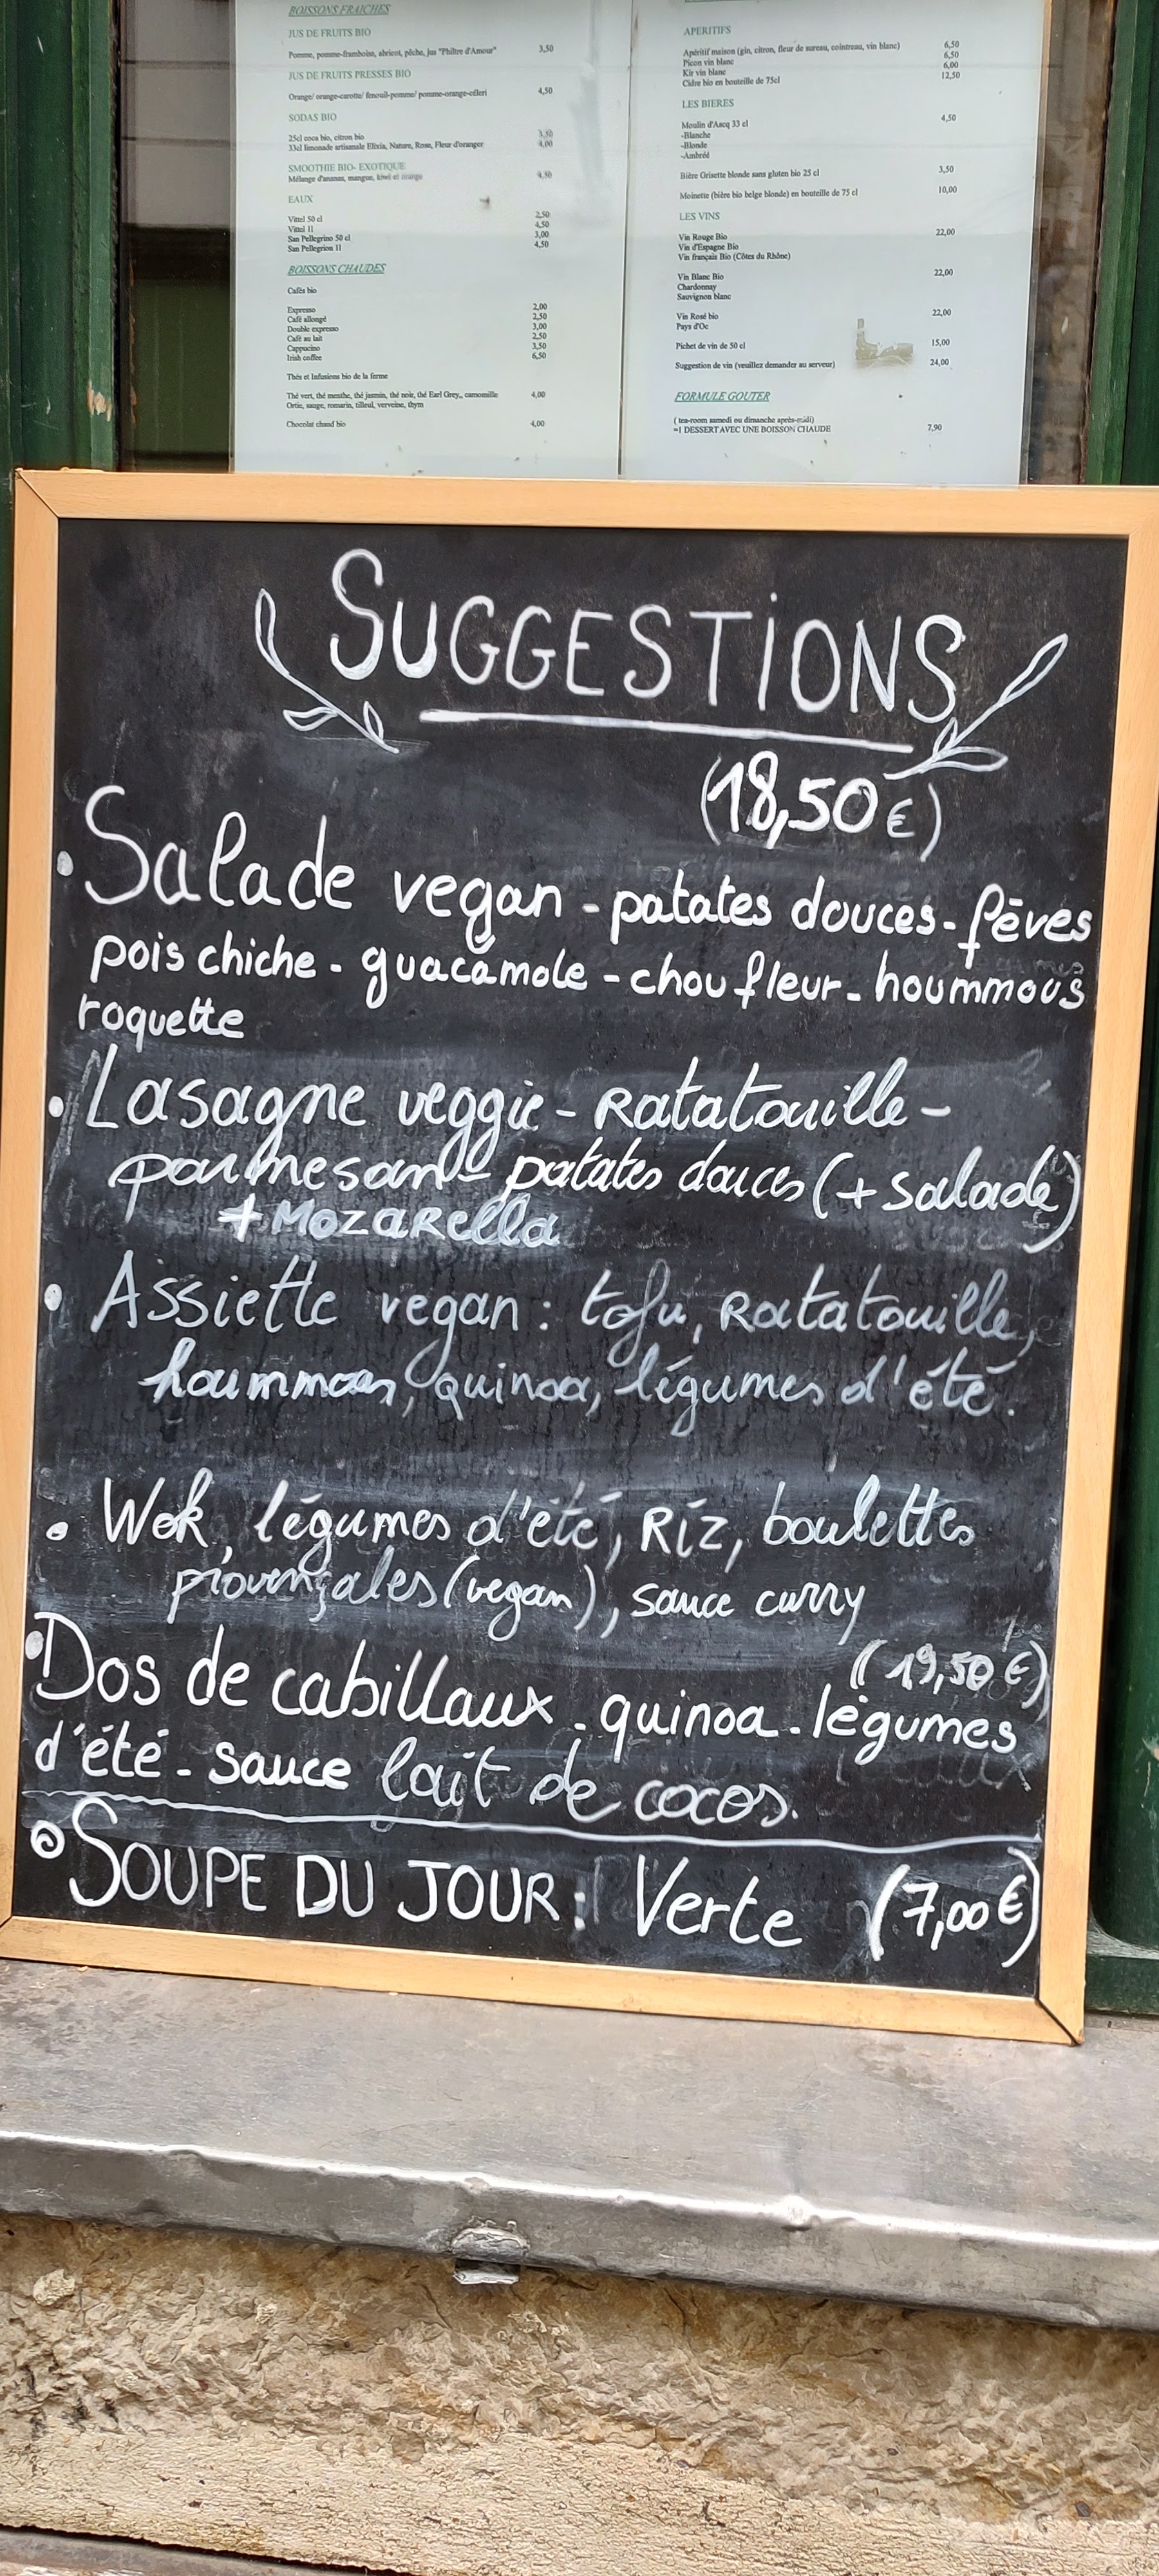 BOISSONS FRAICHES
JUS DE FRUITS BIO
Pomme, pomme-framboise, abricot, pêche, jus "Philtre d'Amour" 3,50
JUS DE FRUITS PRESSES BIO
Orange/ orange-carotte/ fenouil-pomme/ pomme-orange-céleri 4,50
SODAS BIO
25cl coca bio, citron bio 3,50
33cl limonade artisanale Elixia, Nature, Rose, Fleur d'oranger 4,00
SMOOTHIE BIO- EXOTIQUE
Mélange d'ananas, mangue, kiwi et orange 4,50
EAUX
Vittel 50 cl 2,50
Vittel 1l 4,50
San Pellegrino 50 cl 3,00
San Pellegrion 1l 4,50
BOISSONS CHAUDES
Cafés bio
Expresso 2,00
Café allongé 2,50
Double expresso 3,00
Café au lait 2,50
Cappucino 3,50
Irish coffee 6,50
Thés et Infusions bio de la ferme
Thé vert, thé menthe, thé jasmin, thé noir, thé Earl Grey,, camomille 4,00
Ortie, sauge, romarin, tilleul, verveine, thym
Chocolat chaud bio 4,00
APERITIFS
Apéritif maison (gin, citron, fleur de sureau, cointreau, vin blanc) 6,50
Picon vin blanc 6,50
Kir vin blanc 6,00
Cidre bio en bouteille de 75cl 12,50
LES BIERES
Moulin d'Ascq 33 cl 4,50
-Blanche
-Blonde
-Ambréé
Bière Grisette blonde sans gluten bio 25 cl 3,50
Moinette (bière bio belge blonde) en bouteille de 75 cl 10,00
LES VINS
Vin Rouge Bio 22,00
Vin d'Espagne Bio
Vin français Bio (Côtes du Rhône)
Vin Blanc Bio 22,00
Chardonnay
Sauvignon blanc
Vin Rosé bio 22,00
Pays d'Oc
Pichet de vin de 50 cl 15,00
Suggestion de vin (veuillez demander au serveur) 24,00
FORMULE GOUTER
( tea-room samedi ou dimanche après-midi)
=1 DESSERT AVEC UNE BOISSON CHAUDE 7,90
SUGGESTIONS
(18,50€)
• Salade vegan - patates douces - fêves
pois chiche - guacamole - chou fleur - hoummous
roquette
• Lasagne veggie - Ratatouille -
parmesan - patates douces (+ salade)
+ Mozarella
• Assiette vegan : tofu, Ratatouille,
hoummous, quinoa, légumes d'été.
• Wok, légumes d'été, Riz, boulettes
provençales (vegan), sauce curry
(19,50€)
• Dos de cabillaux - quinoa - légumes
d'été - sauce lait de cocos.
• SOUPE DU JOUR : Verte (7,00€)